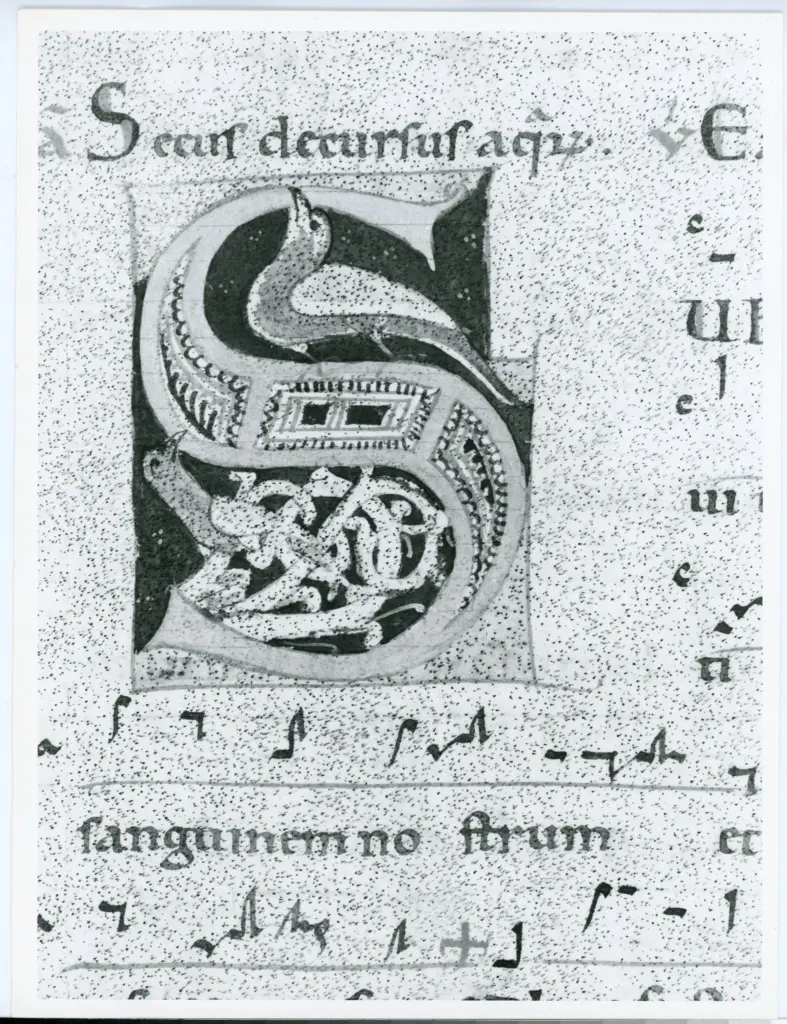 Secus decursus aq̃ꝝ. ℣ E
S
sanguinem no strum et